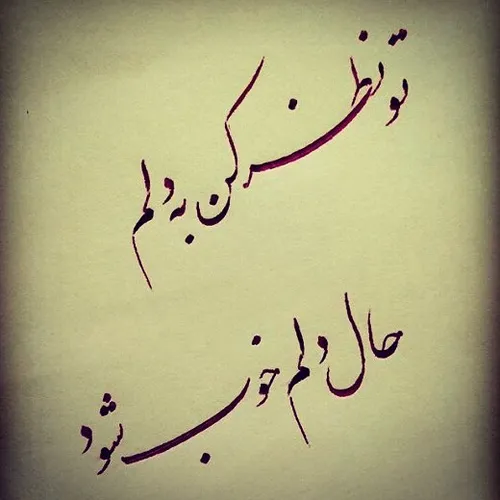 تو نظر کن به دلم
حال دلم خوب شود